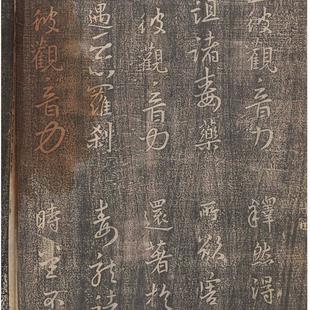 彼觀音力 釋然得
詛諸毒藥 所欲害
彼觀音力 還著於
遇惡羅刹 毒龍諸
彼觀音力 時悉不